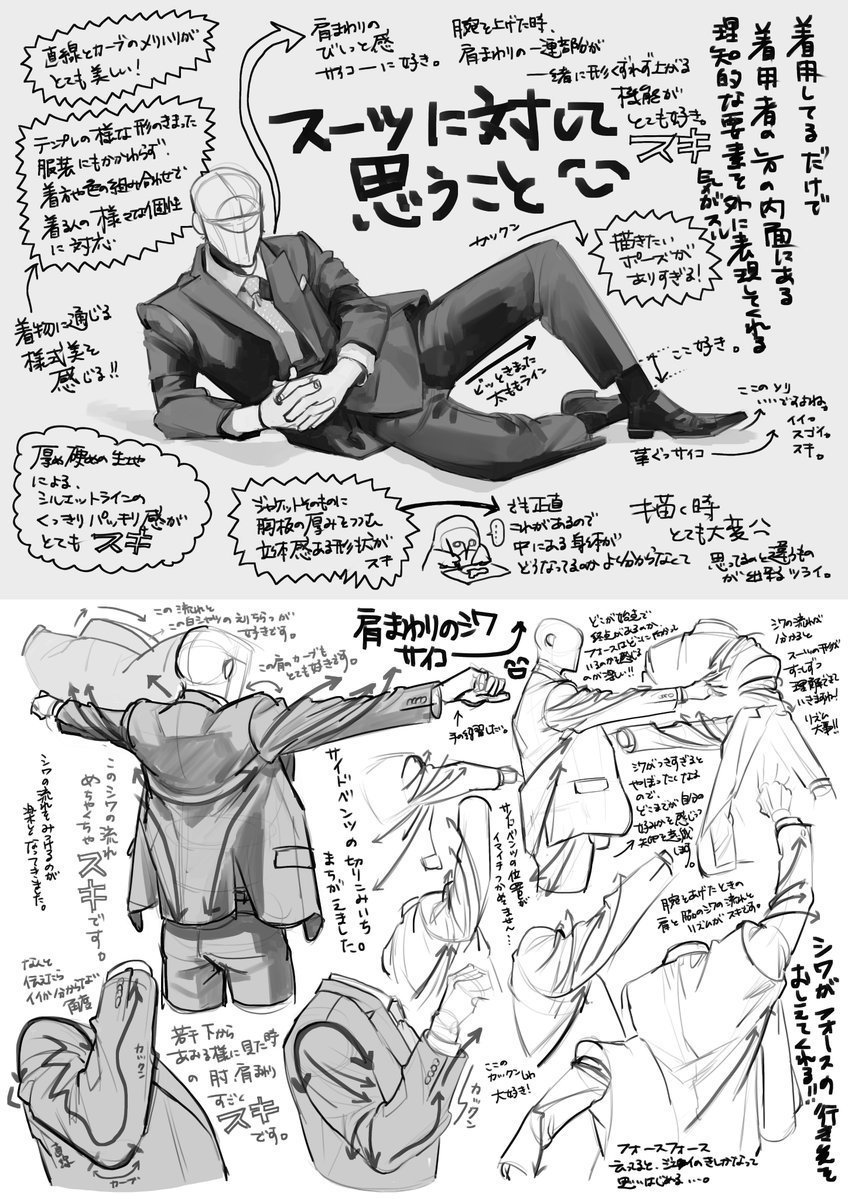 直線とカーブのメリハリが
とても美しい!
テンプレの様な形のきまった
服装にもかかわらず!
着方や色の組み合わせで
着る人の様々な個性
に対応
着物に通じる
様式美を
感じる!!
肩まわりの
びしっと感
サイコーに好き。
腕を上げた時、
肩まわりの一連部分が
一緒に形くずれず上がる
機能が
とても好き。
スキ
スーツに対して
思うこと
着用してるだけで
着用者の方の内面にある
理知的な要素を外に表現してくれる
気がスル
カックン
描きたい
ポーズが
ありすぎる!
ピッときまった
太ももライン
ここ好き。
ここのソリ
いいですよね。
イイ。
スゴイ。
スキ。
革ぐつサイコ
厚め硬めの生地
による、
シルエットラインの
くっきりパッチリ感が
とてもスキ
ジャケットそのものに
胸板の厚みをつつむ
立体感ある形状が
スキ
でも正直
これがあるので
中にある身体が
どうなってるのかよく分からなくて
描く時
とても大変!!
思ってるのと違うもの
が出来るツライ。
この流れと
この白シャツのえりちらっが
好きです。
この肩のカーブも
とても好きです。
肩まわりのシワ
サイコ
手の練習したい。
シワの流れをみつけるのが
楽しくなってきました。
このシワの流れ
めちゃくちゃ
スキです。
サイドベンツの切りこみいち。
まちがえました。
どこが始点で
終点があるのか、
フォースはどこに向かって
いるのかを感じる
のが楽しい!!
シワの流れが
分かると
スーツの形が
すこしずつ
理解できて
いきますね!
リズム
大事!!
シワがつきすぎると
やぼったくなる
ので、
どこまでが自分の
好みかを感じつつ
サイドベンツの位置が
イマイチつかめてません…
腕をあげたときの
肩と脇のシワの流れと
リズムがスキです。
シワがフォースの行き先を
おしえてくれる!!
なんと
伝えたら
イイか分からない
角度
カックン
直線
カーブ
若干下から
あおる様に見た時
の肘!肩まわり
すごく
スキ
です。
カックン
ここの
カックンしわ
大好き!
フォースフォース
言ってると、ジェダイのきしかなって
思いはじめる…。